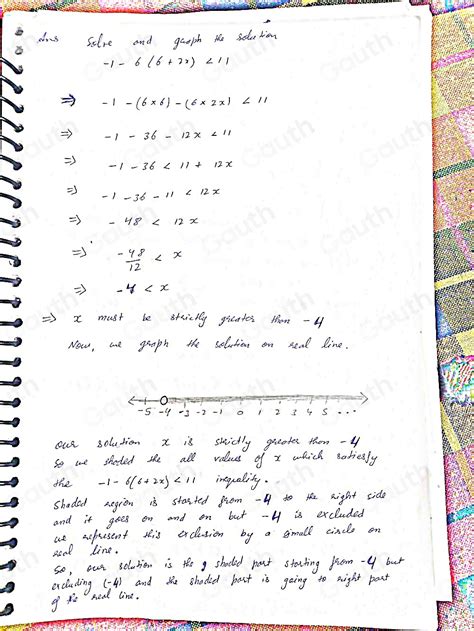 Ans Solve and graph the solution
-1 - 6 (6 + 2x) < 11
⇒ -1 - (6 x 6) - (6 x 2x) < 11
⇒ -1 - 36 - 12x < 11
⇒ -1 - 36 < 11 + 12x
⇒ -1 - 36 - 11 < 12x
⇒ -48 < 12x
⇒ -48/12 < x
⇒ -4 < x
⇒ x must be strictly greater than -4
Now, we graph the solution on real line.
-5 -4 -3 -2 -1 0 1 2 3 4 5 ...
our solution x is strictly greater than -4
so we shaded the all values of x which satisfy
the -1 - 6(6+2x) < 11 inequality.
Shaded region is started from -4 to the right side
and it goes on and on but -4 is excluded
we represent this exclusion by a small circle on
real line.
So, our solution is the shaded part starting from -4 but
excluding (-4) and the shaded part is going to right part
of the real line.
Gauth